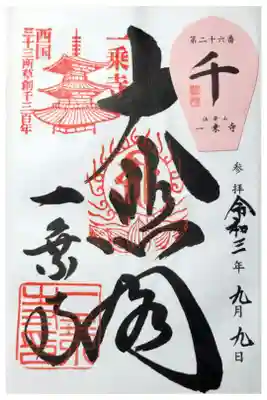 第二十六番
千
法華山
一乗寺
参拝
令和三年九月九日
大悲閣
一乗寺
一乗寺
西国
三十三所草創千三百年